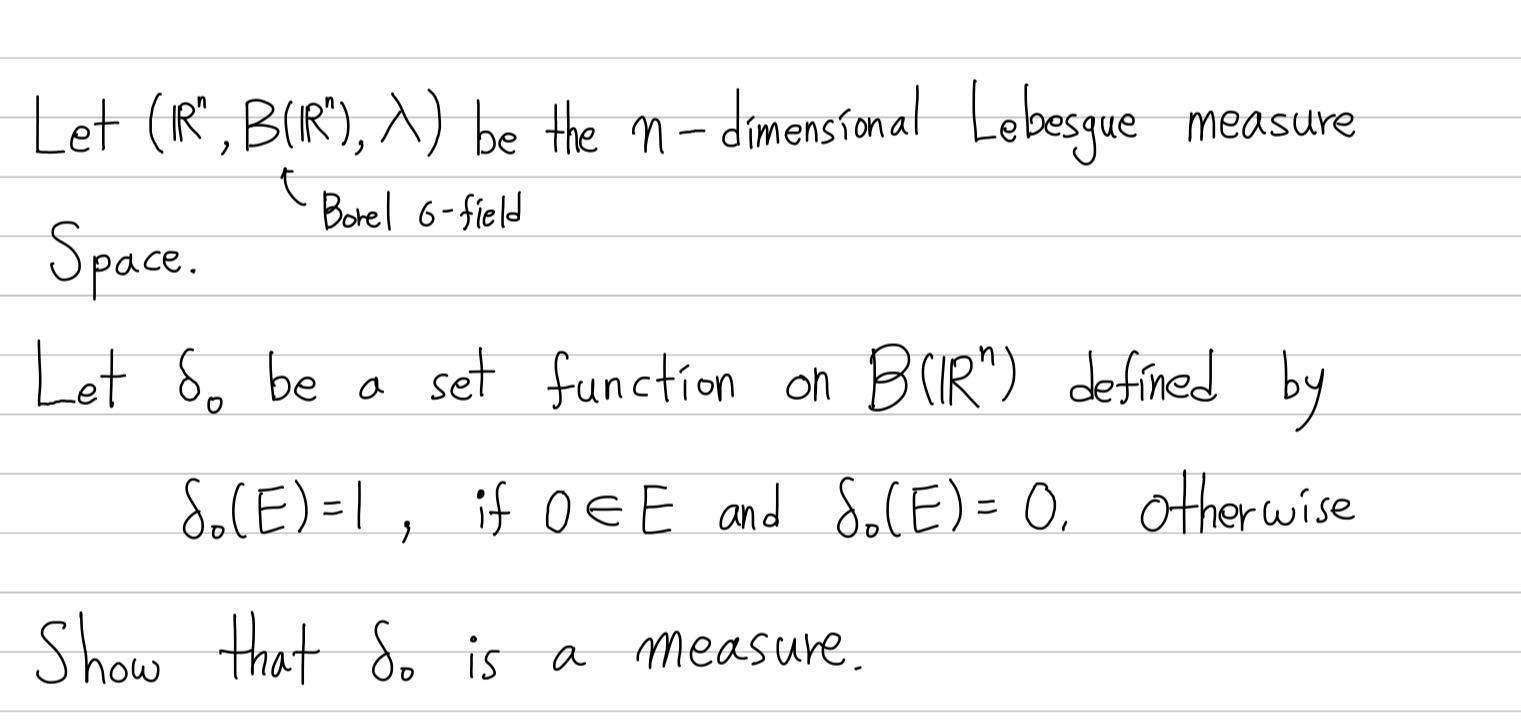 Let (ℝⁿ, B(ℝⁿ), λ) be the n-dimensional Lebesgue measure
Borel σ-field
Space.
Let δ₀ be a set function on B(ℝⁿ) defined by
δ₀(E)=1, if 0∈E and δ₀(E)=0, otherwise
Show that δ₀ is a measure.